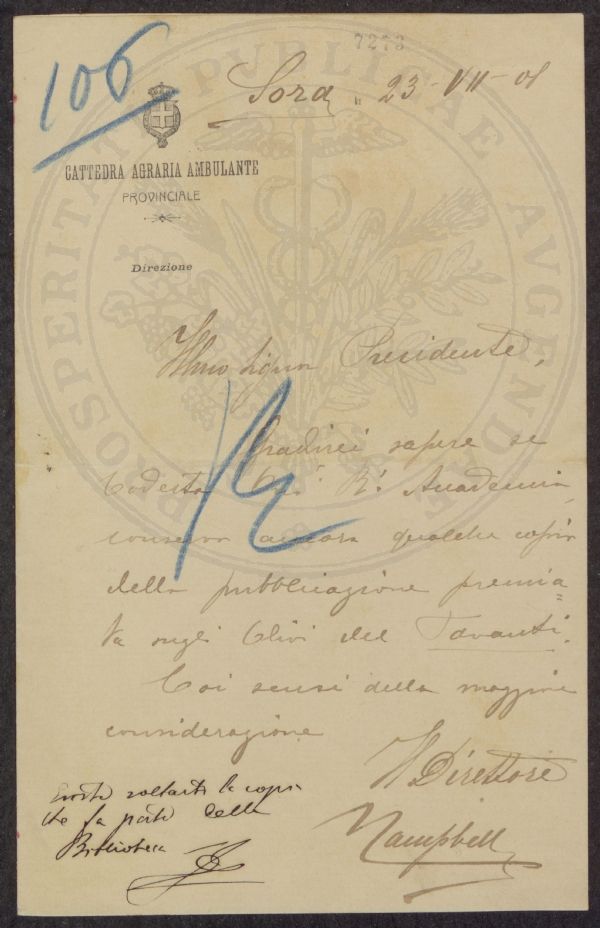 7273
106
Sora, 23-VII-01
CATTEDRA AGRARIA AMBULANTE
PROVINCIALE
Direzione
PROSPERITATI PUBLICAE AVGENDAE
Illmo Signor Presidente,
R
Gradirei sapere se
codesta R. Accademia
conserva ancora qualche copia
della pubblicazione premia=
ta sugli Olivi del Tavanti.
Coi sensi della maggiore
considerazione
Il Direttore
Campbell
Esiste soltanto la copia
che fa parte della
Biblioteca